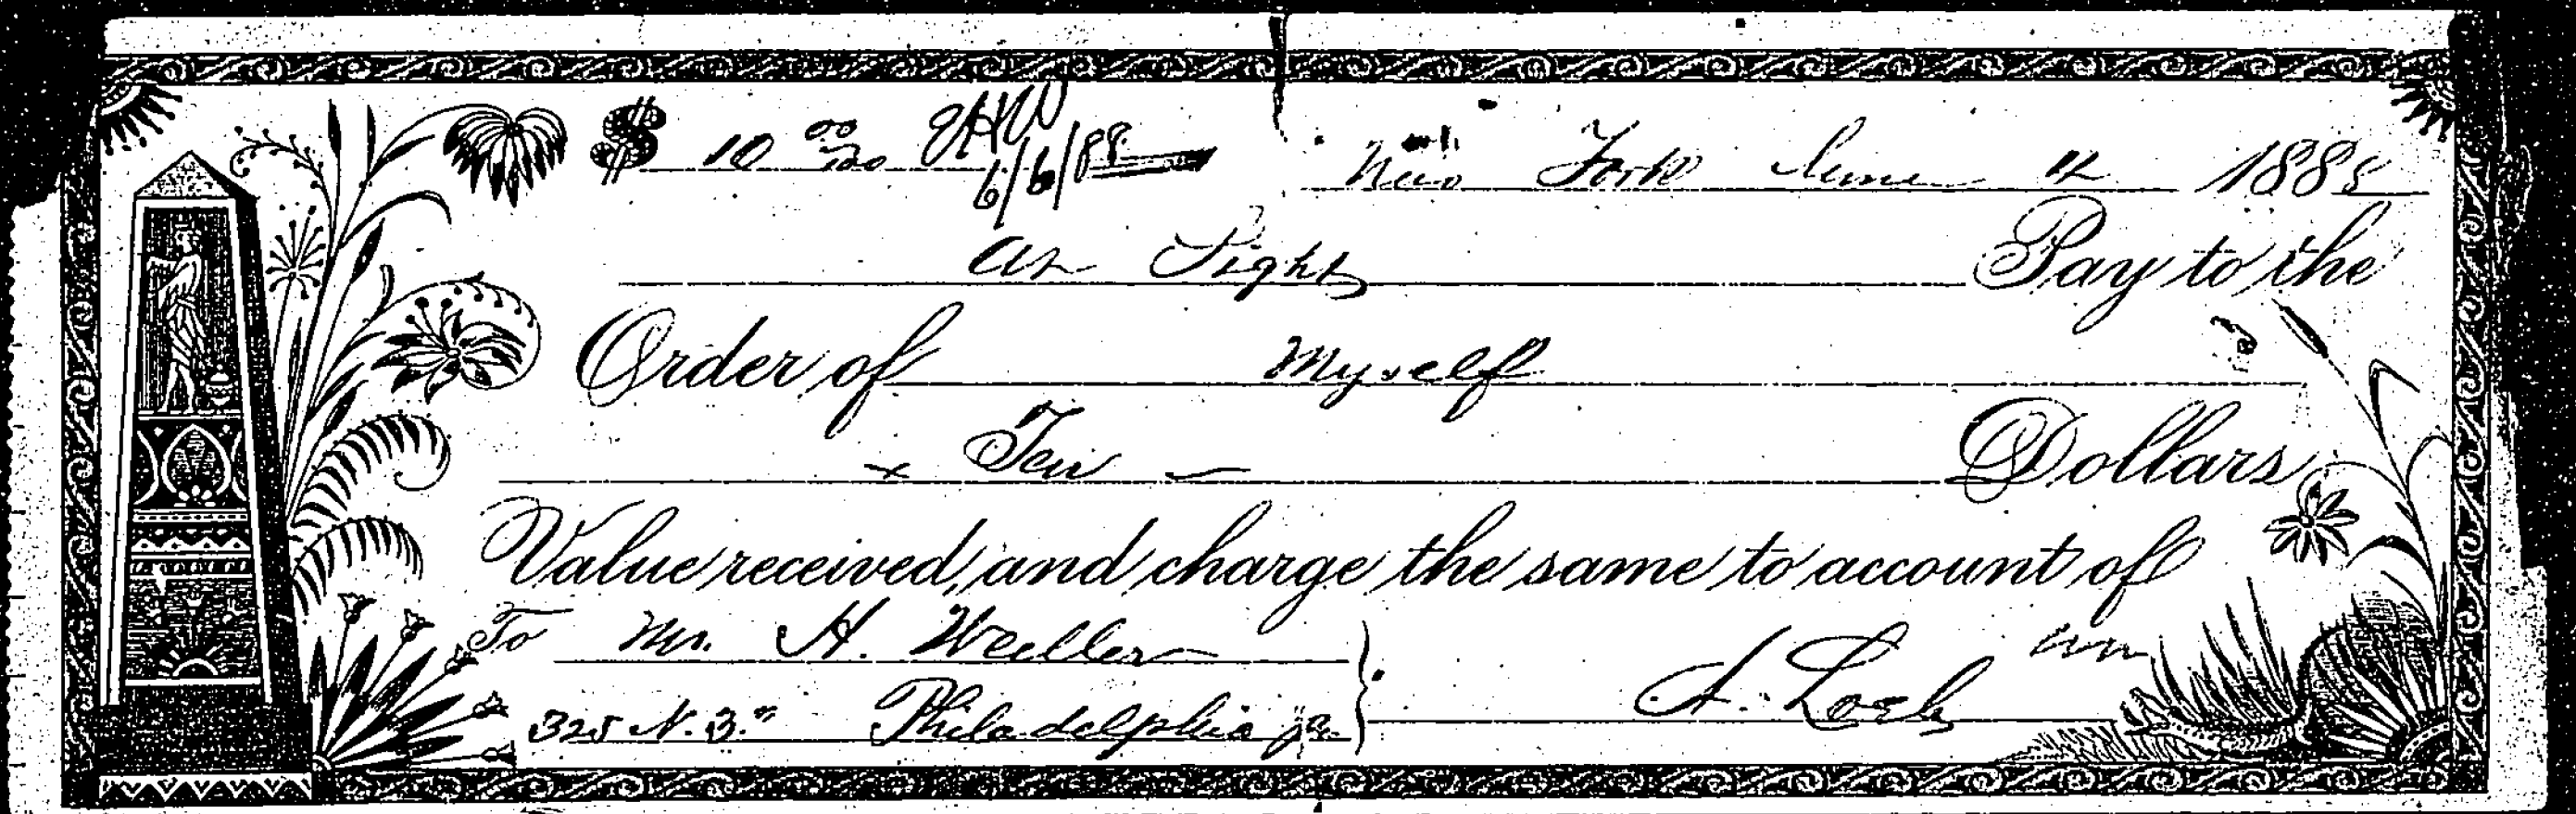 $ 10 00/100
6/6/88
New York June 4 1888
At Sight Pay to the
Order of Myself
Ten Dollars
Value received, and charge the same to account of
To Mr. H. Weiller
325 N. 3." Philadelphia Pa.
A. Loeb